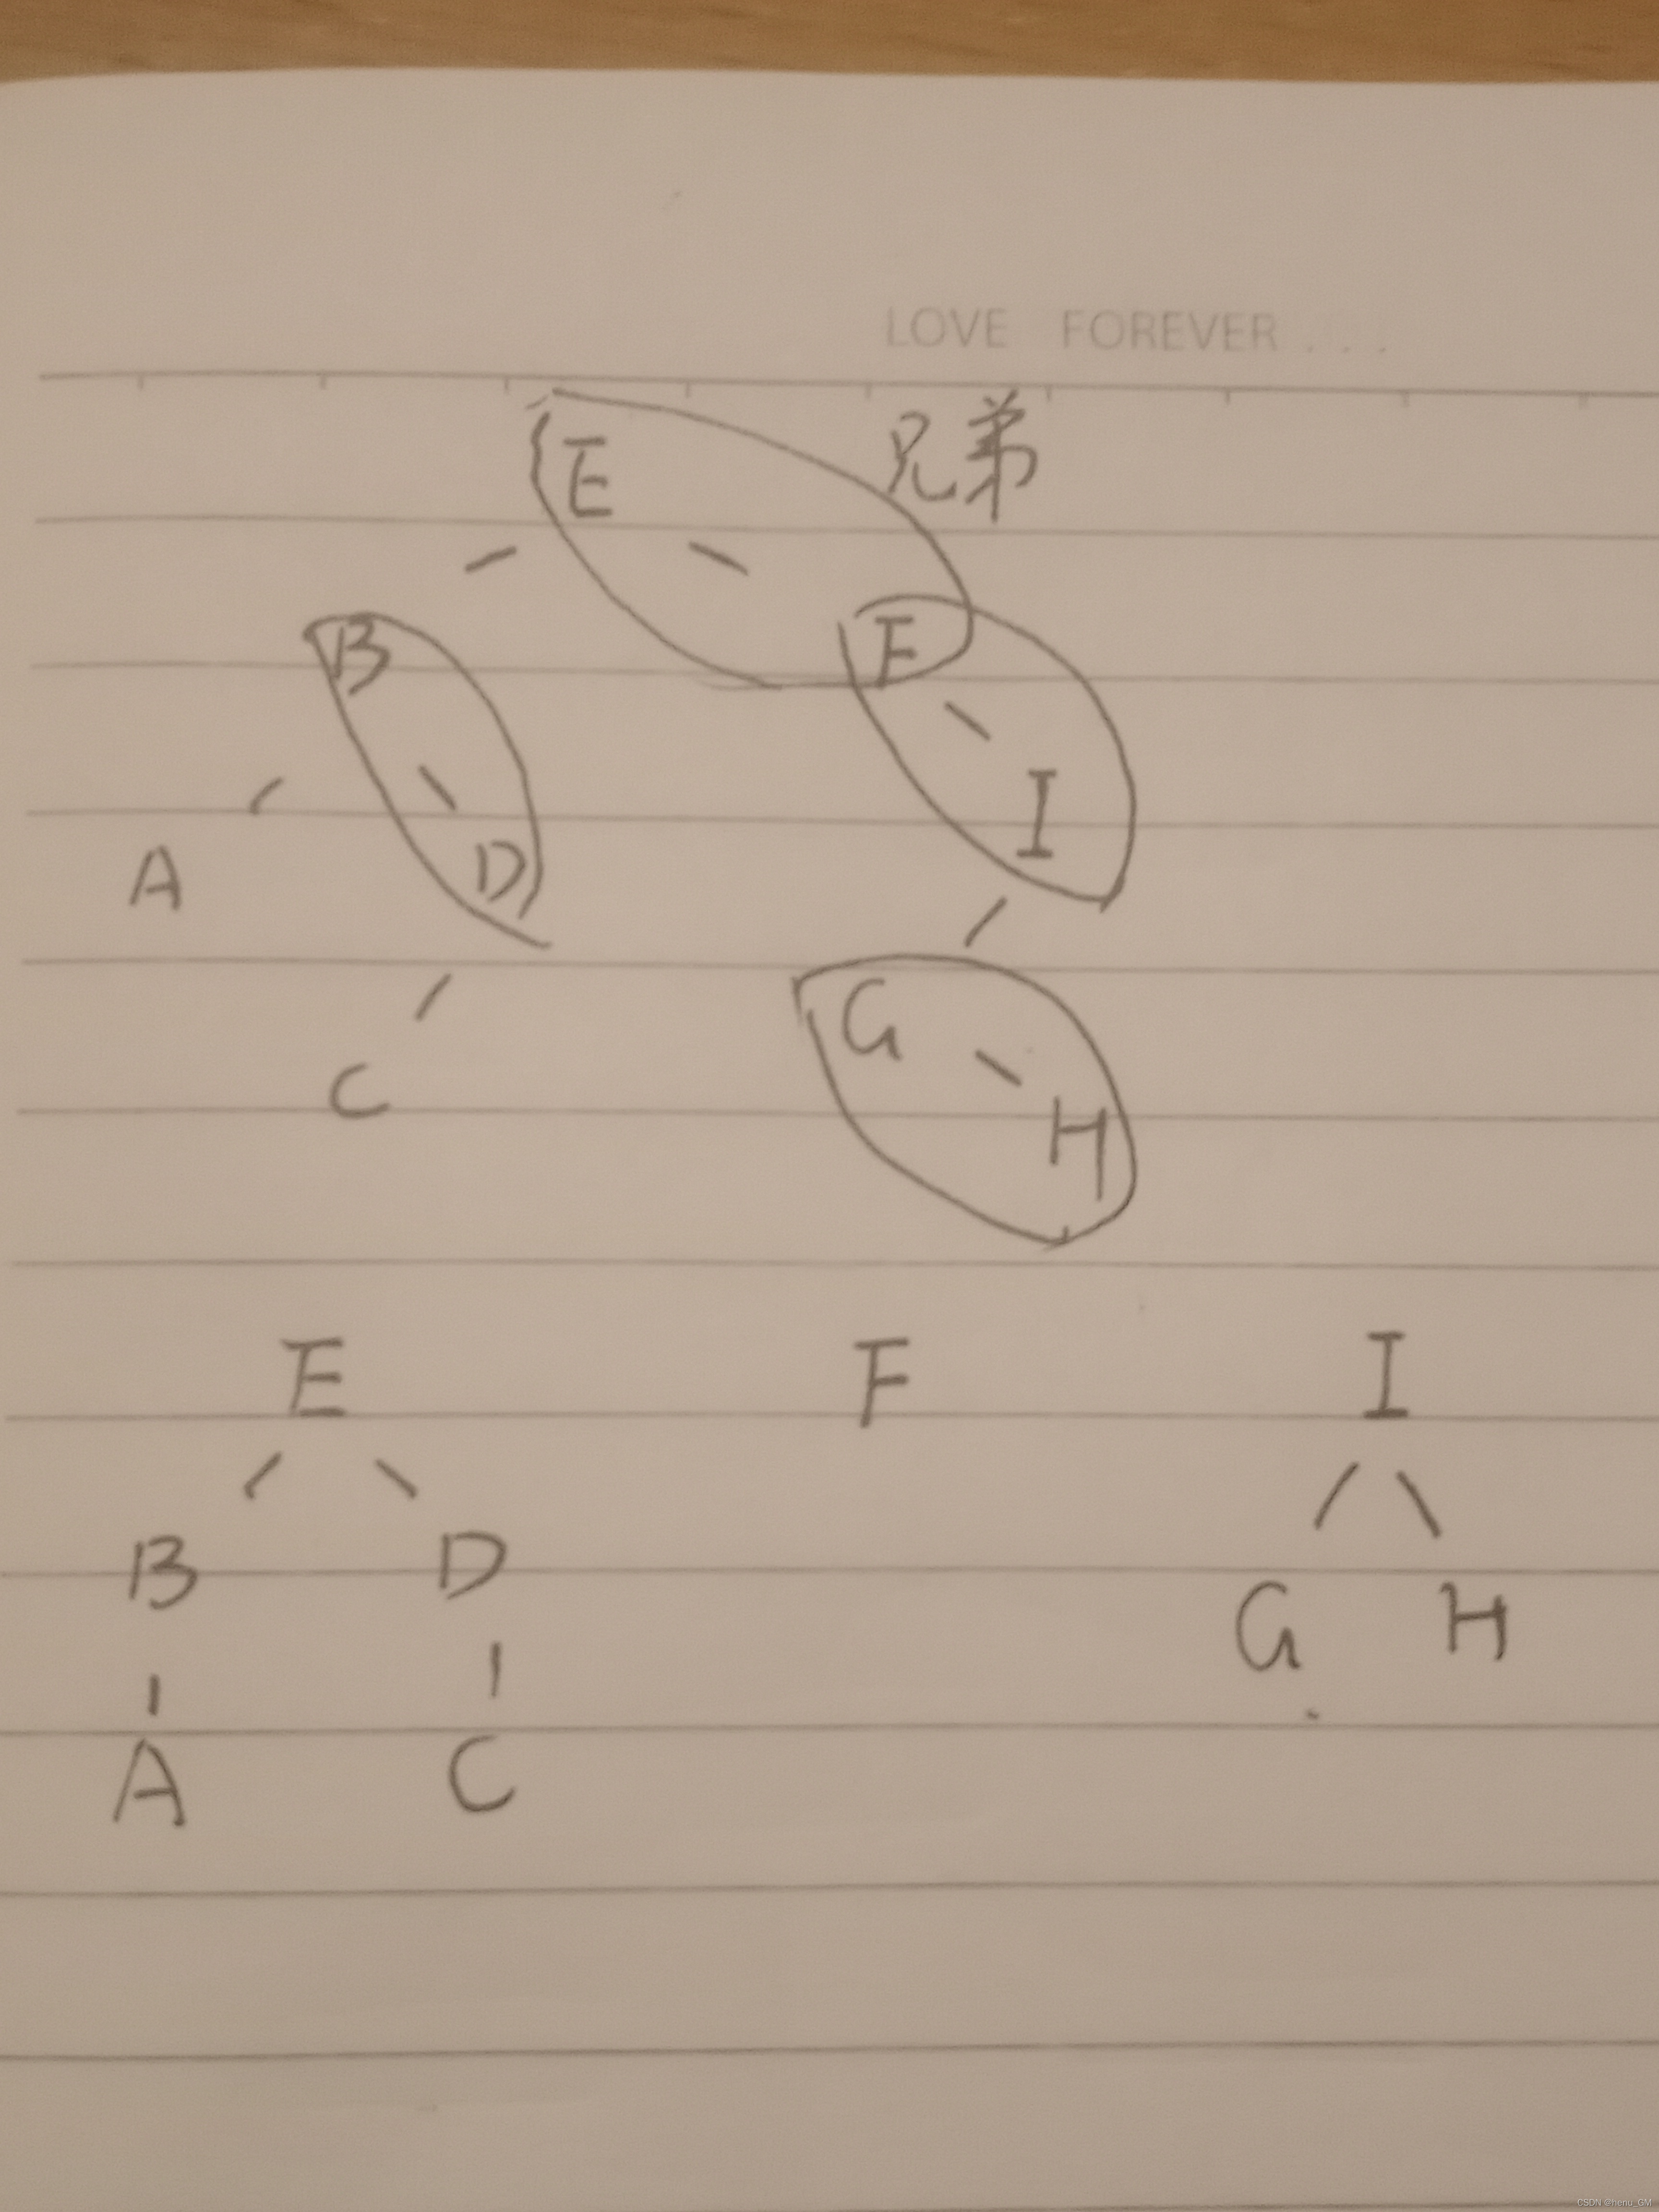 LOVE FOREVER ...
E 兄弟
B F
A D I
C G
H
E F I
B D G H
A C
CSDN @henu_GM